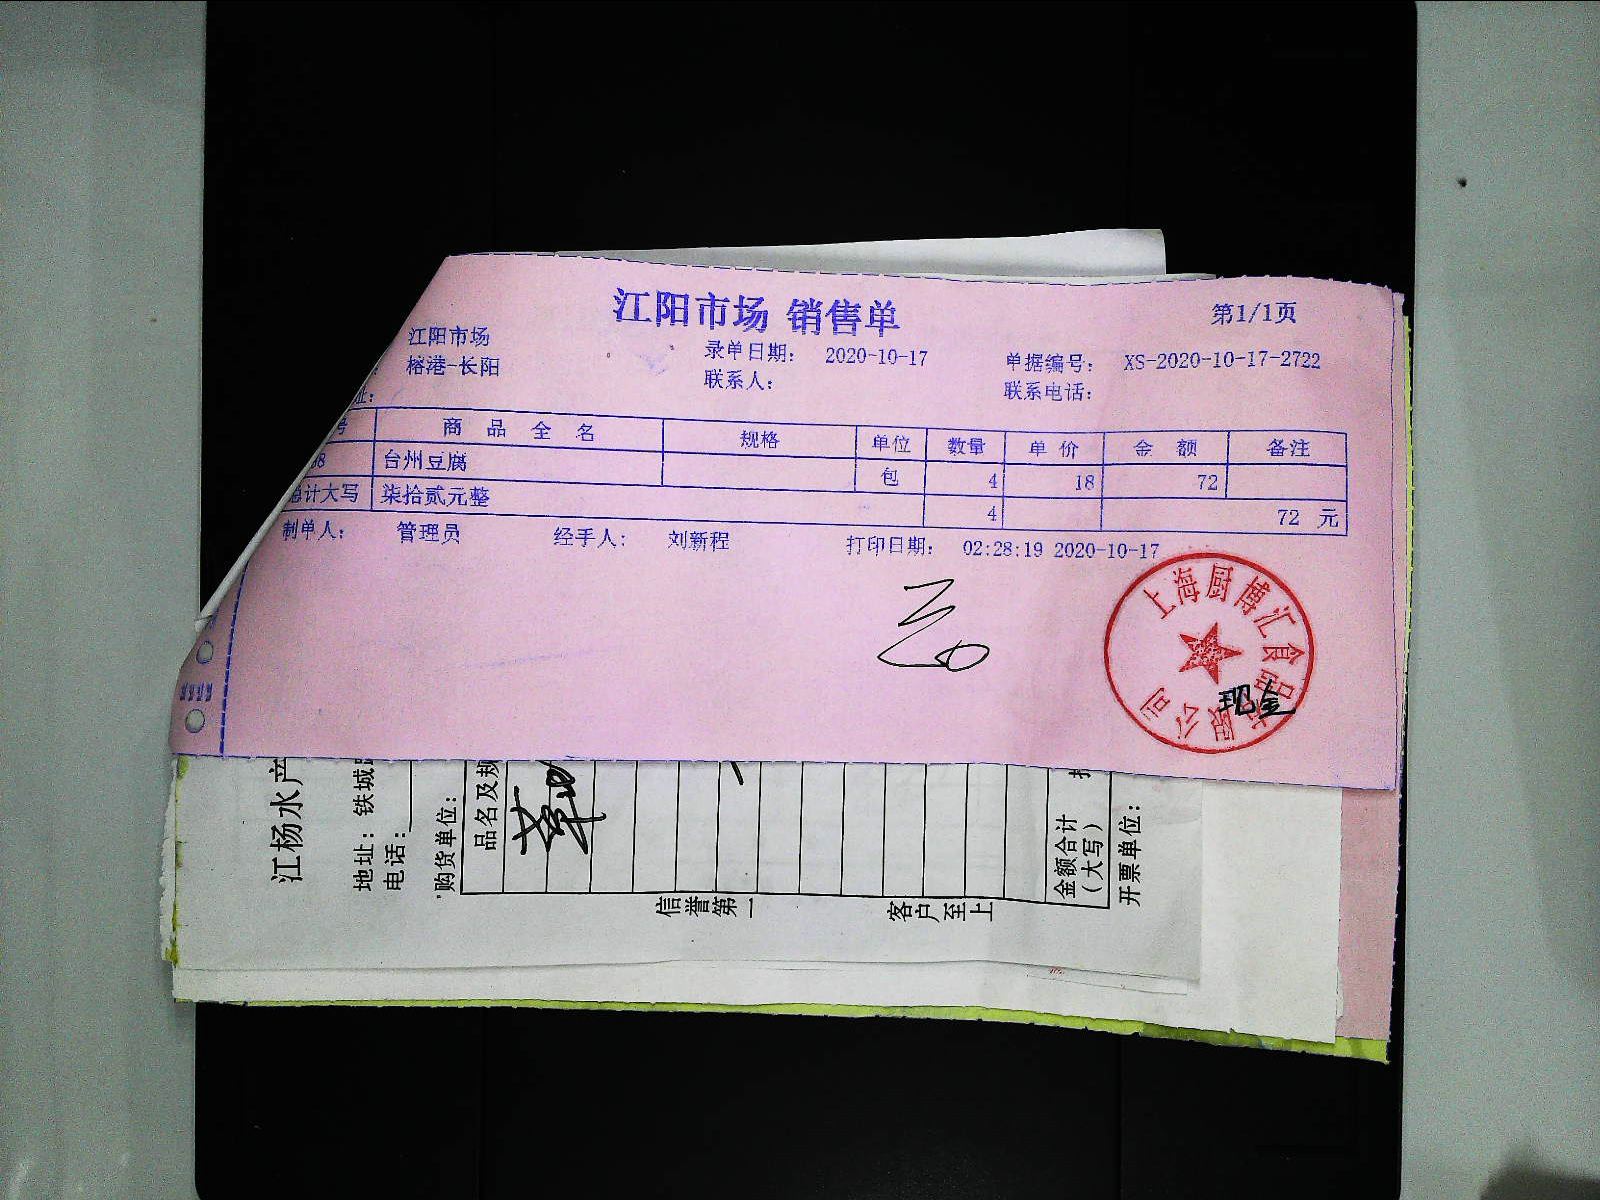 江阳市场 销售单
第1/1页
江阳市场
录单日期： 2020-10-17
单据编号： XS-2020-10-17-2722
榕港-长阳
联系人：
联系电话：
址：
号 商 品 全 名 规格 单位 数量 单 价 金 额 备注
88 台州豆腐 包 4 18 72
总计大写 柒拾贰元整 4 72 元
制单人： 管理员 经手人： 刘新程 打印日期： 02:28:19 2020-10-17
上海厨博汇食品有限公司
现金
江杨水产
地址：铁城路
电话：
购货单位：
品名及规
信誉第一
客户至上
金额合计
（大写）
开票单位：